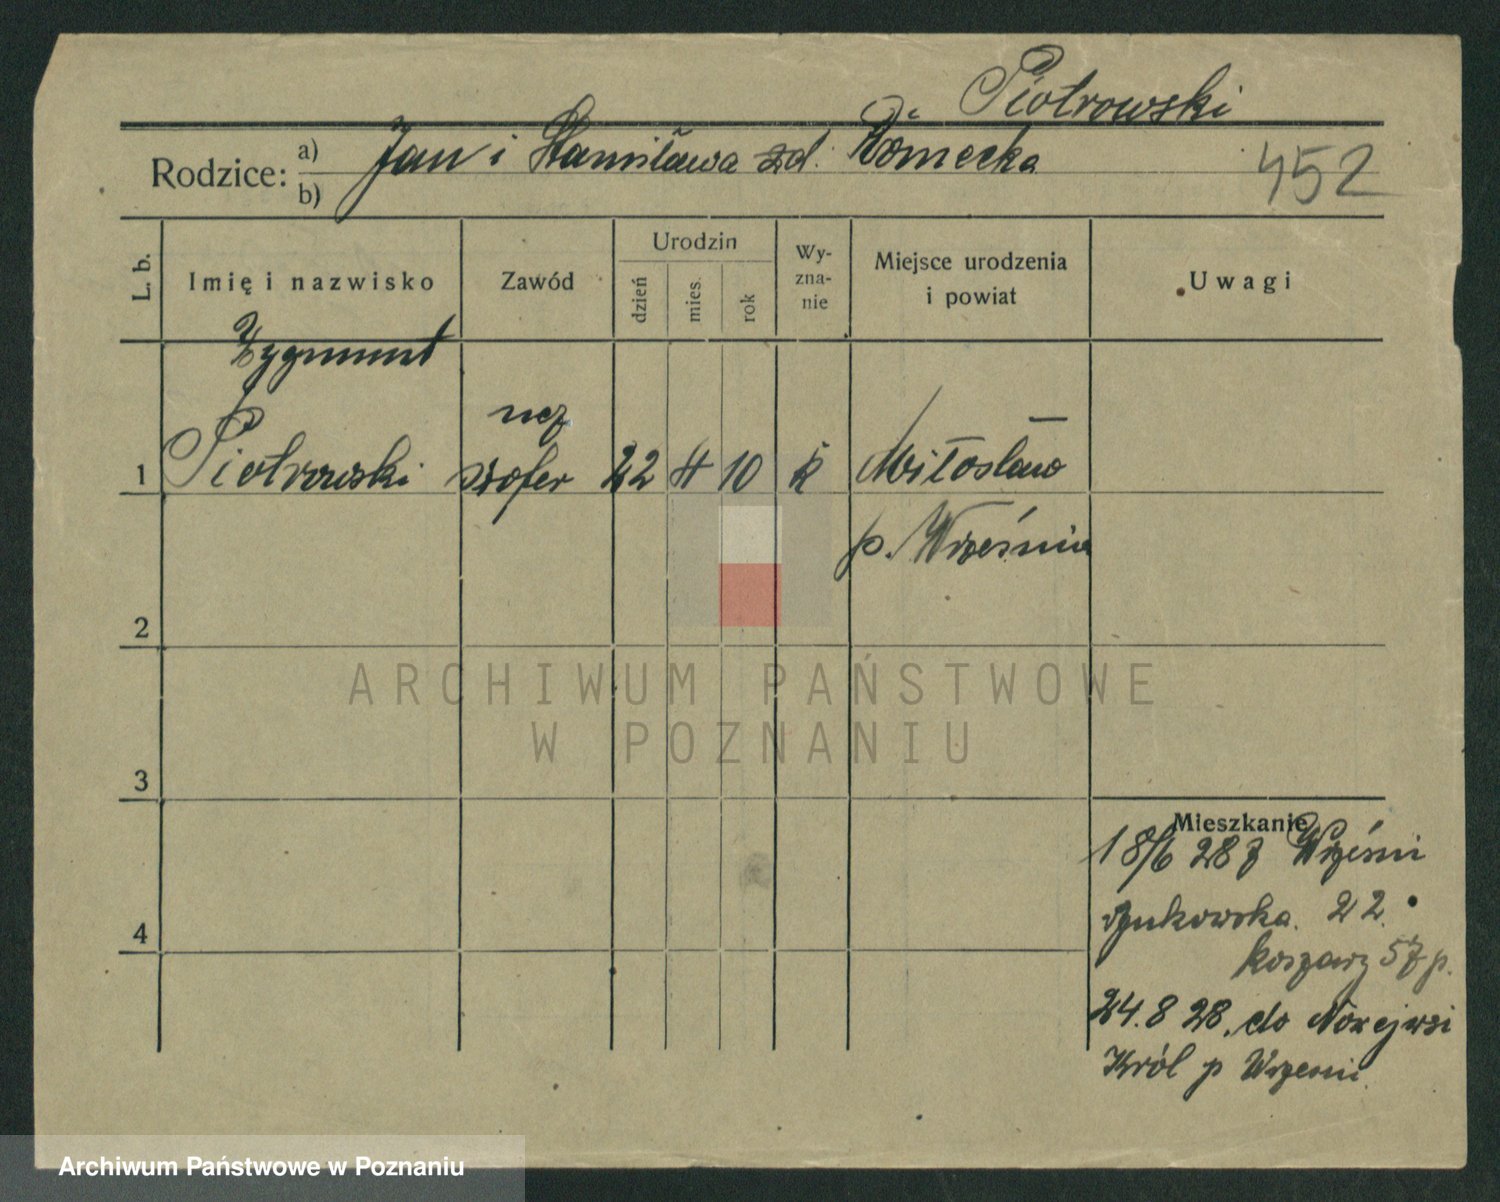 Piotrowski
Rodzice: a) Jan i Stanisława zd.
b)
452
L. b.
Imię i nazwisko
Zawód
Urodzin
dzień
mies.
rok
Wy-
zna-
nie
Miejsce urodzenia
i powiat
Uwagi
Zygmunt
ucz
1 Piotrowski szofer 22 4 10 k Miłosław
p. Września
2
3
4
ARCHIWUM PAŃSTWOWE
W POZNANIU
Mieszkanie
18/6 28 z Wrześni
22.
koszary 57 p.
24.8 28. do Nowejwsi
Król p Wrzesni
Archiwum Państwowe w Poznaniu